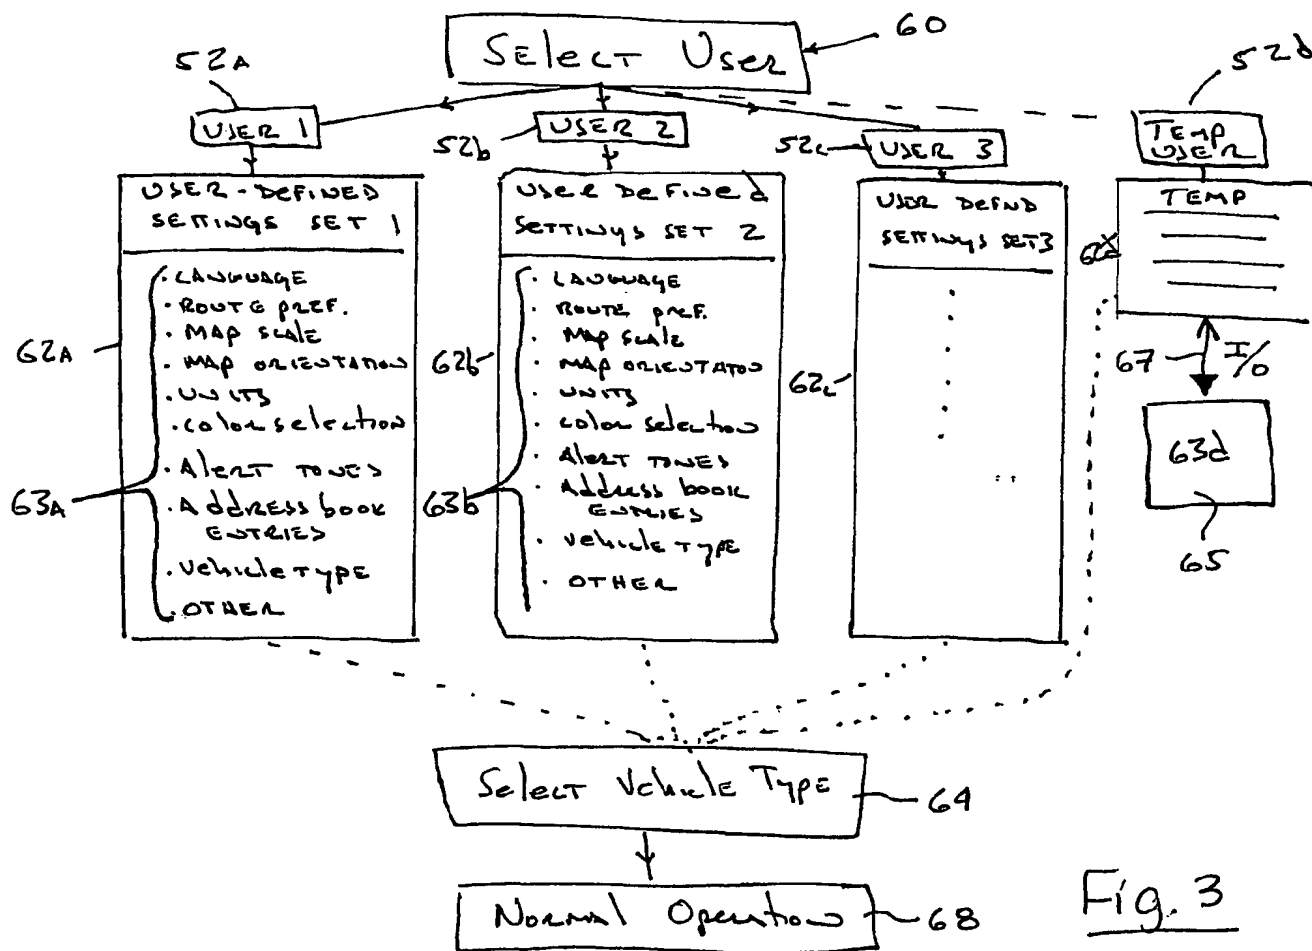 Select User
60
52A
52d
USER 1
52b
USER 2
52c
USER 3
TEMP
USER
USER-DEFINED
SETTINGS SET 1
LANGUAGE
ROUTE PREF.
MAP SCALE
MAP ORIENTATION
UNITS
COLOR SELECTION
ALERT TONES
ADDRESS BOOK
ENTRIES
VEHICLE TYPE
OTHER
62A
63A
USER DEFINED
SETTINGS SET 2
LANGUAGE
ROUTE PREF.
MAP SCALE
MAP ORIENTATON
UNITS
COLOR SELECTION
ALERT TONES
ADDRESS BOOK
ENTRIES
VEHICLE TYPE
OTHER
62b
63b
USER DEFND
SETTINGS SET3
62c
TEMP
67
I/O
63d
65
Select Vehicle Type
64
Normal Operation
68
Fig. 3